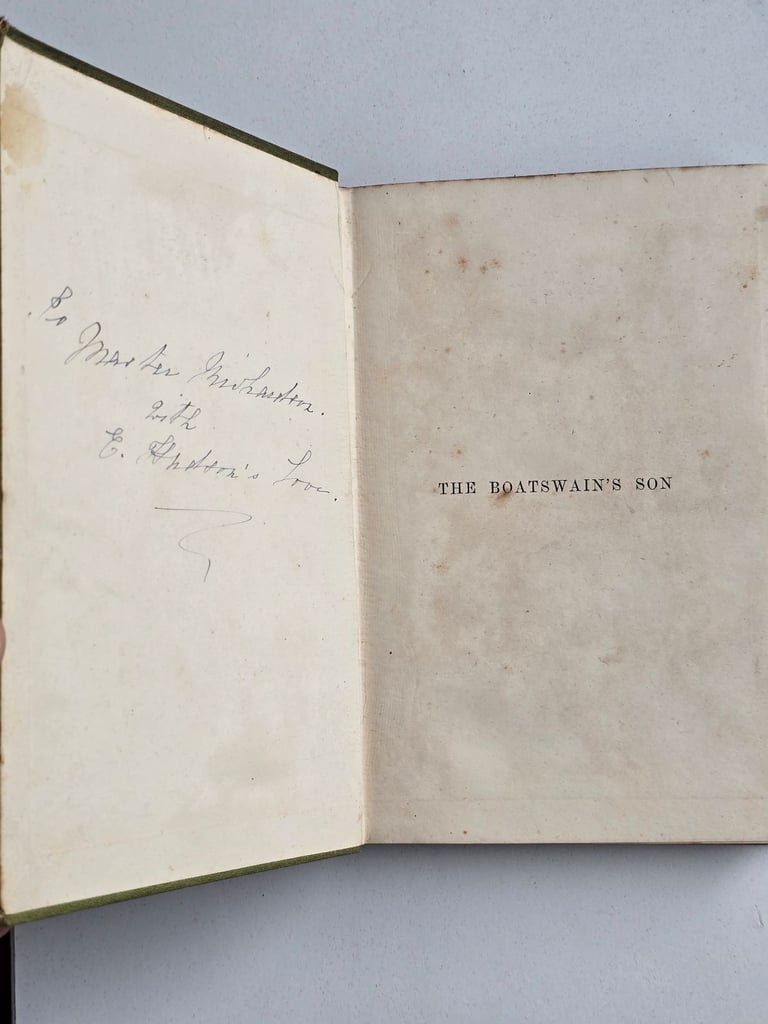 To
Master Richardson.
with
E. Hudson's Love.
THE BOATSWAIN'S SON